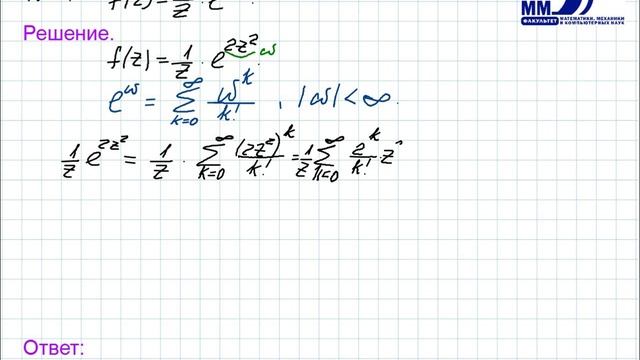 f(z) = 1/z · e
ММ
ФАКУЛЬТЕТ
МАТЕМАТИКИ, МЕХАНИКИ
И КОМПЬЮТЕРНЫХ НАУК
Решение.
f(z) = 1/z · e^{2z²} ω
e^ω = ∑_{k=0}^{∞} ω^k/k! , |ω| < ∞.
1/z e^{2z²} = 1/z · ∑_{k=0}^{∞} (2z²)^k/k! = 1/z ∑_{k=0}^{∞} 2^k/k! z
Ответ: